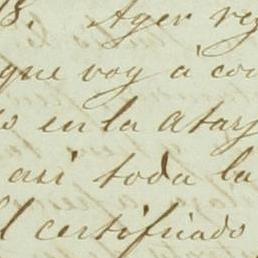 8. Ayer reg
que voy à co
o en la atay
asi toda la
l certificado